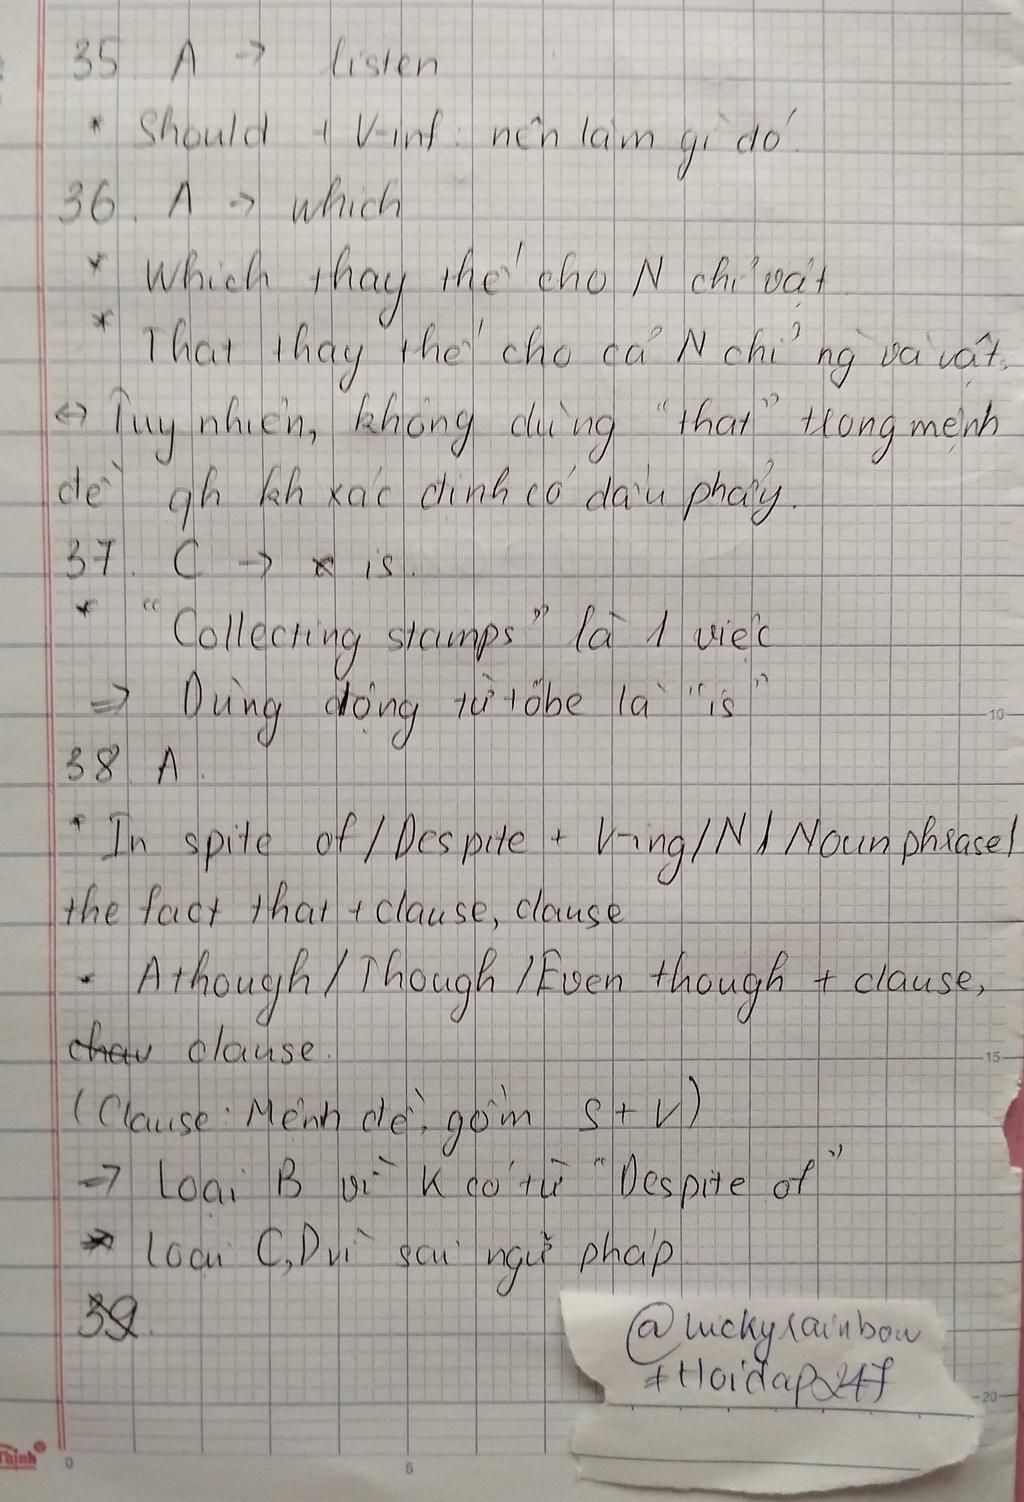 35 A → listen
* Should + V-inf : nên làm gì đó.
36. A → which
* Which thay thế cho N chỉ vật
* That thay thế cho cả N chỉ ng và vật.
↔ Tuy nhiên, không dùng "that" trong mệnh
đề qh kh xác định có dấu phẩy.
37. C → is.
* "Collecting stamps" là 1 việc
⇒ Dùng động từ tobe là "is"
38 A.
* In spite of / Despite + V-ing / N / Noun phrase /
the fact that + clause, clause
- Athough / Though / Even though + clause,
clause.
(Clause : Mệnh đề, gồm S + V)
→ Loại B vì K có từ "Despite of"
* Loại C, D vì sai ngữ pháp
39.
@luckyrainbow
#Hoidap247
10
15
20
0 5